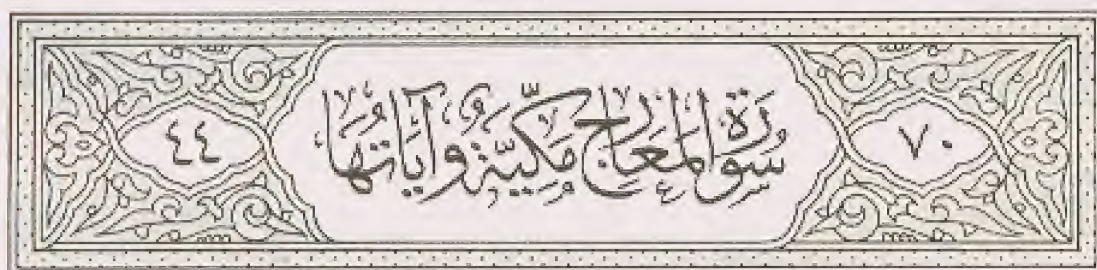 ٧٠ سُورَة المَعَارِج مَكِّيَّة وَآيَاتُهَا ٤٤